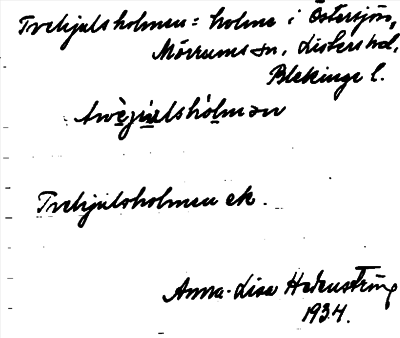 Tvehjulsholmen = holme i Östersjön,
Mörrums sn, Listers hd,
Blekinge l.
Tvehjulsholmen ek.
Anna-Lisa Hakenström
1934.